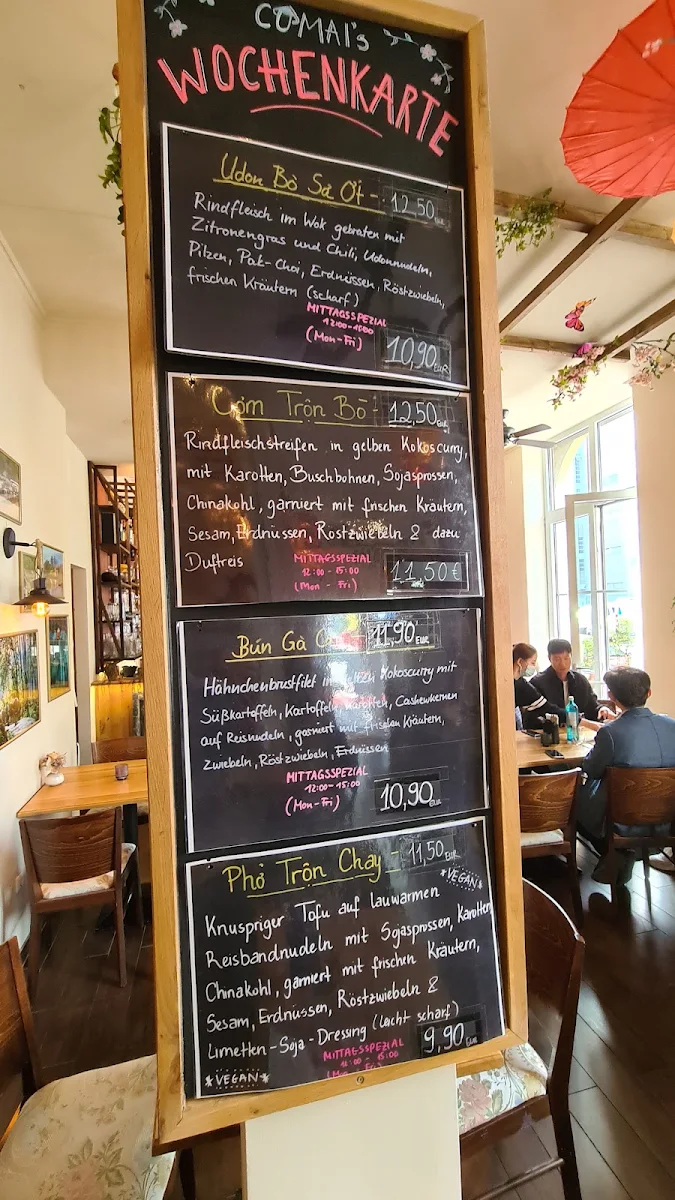 COMAI's
WOCHENKARTE
Udon Bò Sả Ớt - 12,50 EUR
Rindfleisch im Wok gebraten mit
Zitronengras und Chili, Udonnudeln,
Pilzen, Pak-Choi, Erdnüssen, Röstzwiebeln,
frischen Kräutern (scharf)
MITTAGSSPEZIAL
(Mon-Fri)
10,90 EUR
Cơm Trộn Bò - 12,50 EUR
Rindfleischstreifen in gelben Kokoscurry,
mit Karotten, Buschbohnen, Sojasprossen,
Chinakohl, garniert mit frischen Kräutern,
Sesam, Erdnüssen, Röstzwiebeln & dazu
Duftreis
MITTAGSSPEZIAL
12:00-15:00
(Mon-Fri)
11,50 €
Bún Gà 11,90 EUR
Hähnchenbrustfilet Kokoscurry mit
Süßkartoffeln, Kartoffeln, Karotten, Cashewkernen
auf Reisnudeln, garniert mit frischen Kräutern,
Zwiebeln, Röstzwiebeln, Erdnüssen
MITTAGSSPEZIAL
12:00-15:00
(Mon-Fri)
10,90 EUR
Phở Trộn Chay - 11,50 EUR
*VEGAN*
Knuspriger Tofu auf lauwarmen
Reisbandnudeln mit Sojasprossen, Karotten
Chinakohl, garniert mit frischen Kräutern,
Sesam, Erdnüssen, Röstzwiebeln &
Limetten-Soja-Dressing (leicht scharf)
MITTAGSSPEZIAL
9,90 EUR
*VEGAN*